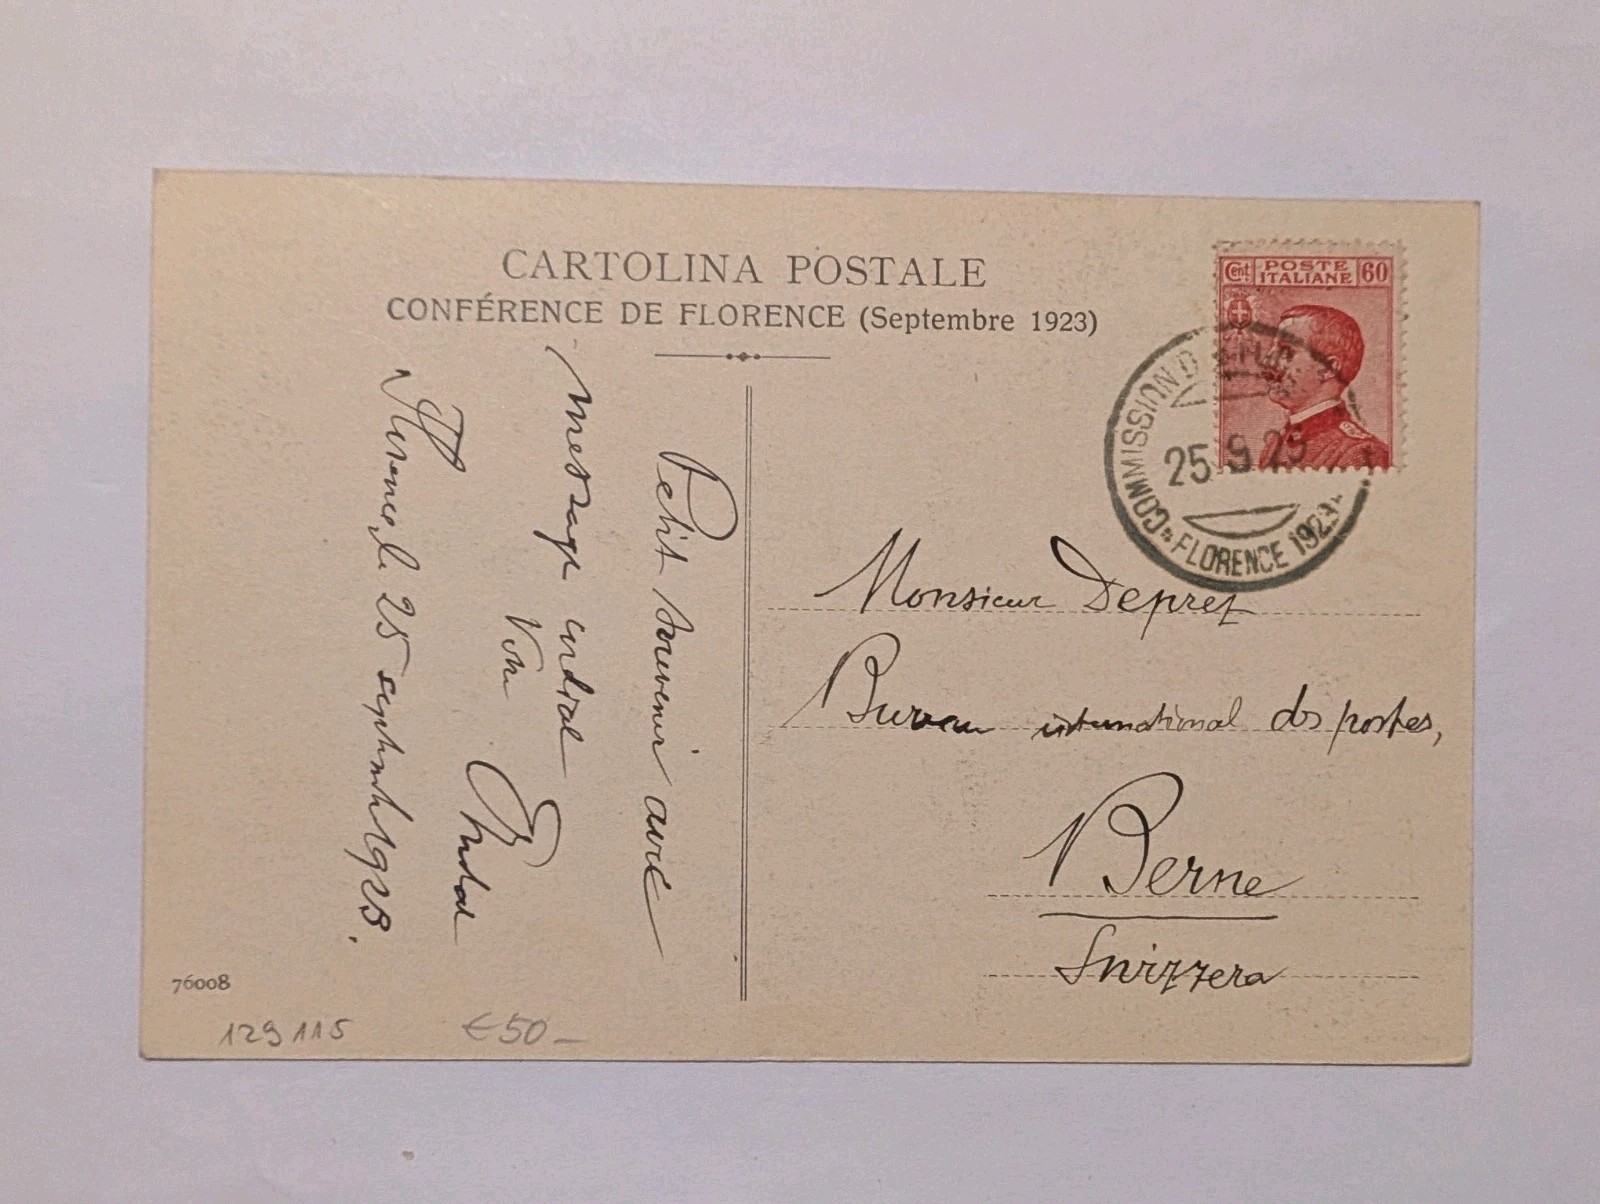 CARTOLINA POSTALE
CONFÉRENCE DE FLORENCE (Septembre 1923)
Cent POSTE ITALIANE 60
COMMISSION D
25.9.23
FLORENCE 1923
Petit souvenir avec
message cordial
Votre
Florence, le 25 septembre 1923.
Monsieur Deprez
Bureau international des postes,
Berne
Svizzera
76008
129115
€50-